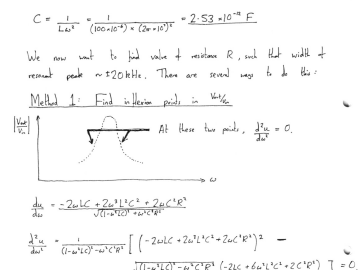 C = 1/(Lω²) = 1/((100×10⁻⁶) × (2π×10⁷)²) = 2.53 ×10⁻¹² F
We now want to find value of resistance R, such that width of
resonant peak ~ ±20kHz. There are several ways to do this:
Method 1: Find inflexion points in Vout/Vin
|Vout/Vin|
At these two points, d²u/dω² = 0.
ω
du/dω = (-2ωLC + 2ω³L²C² + 2ωC²R²)/√((1-ω²LC)² + ω²C²R²)
d²u/dω² = 1/((1-ω²LC)² - ω²C²R²) [ (-2ωLC + 2ω³L²C² + 2ωC²R²)² -
√((1-ω²LC)² - ω²C²R²) (-2LC + 6ω²L²C² + 2C²R²) ] = 0